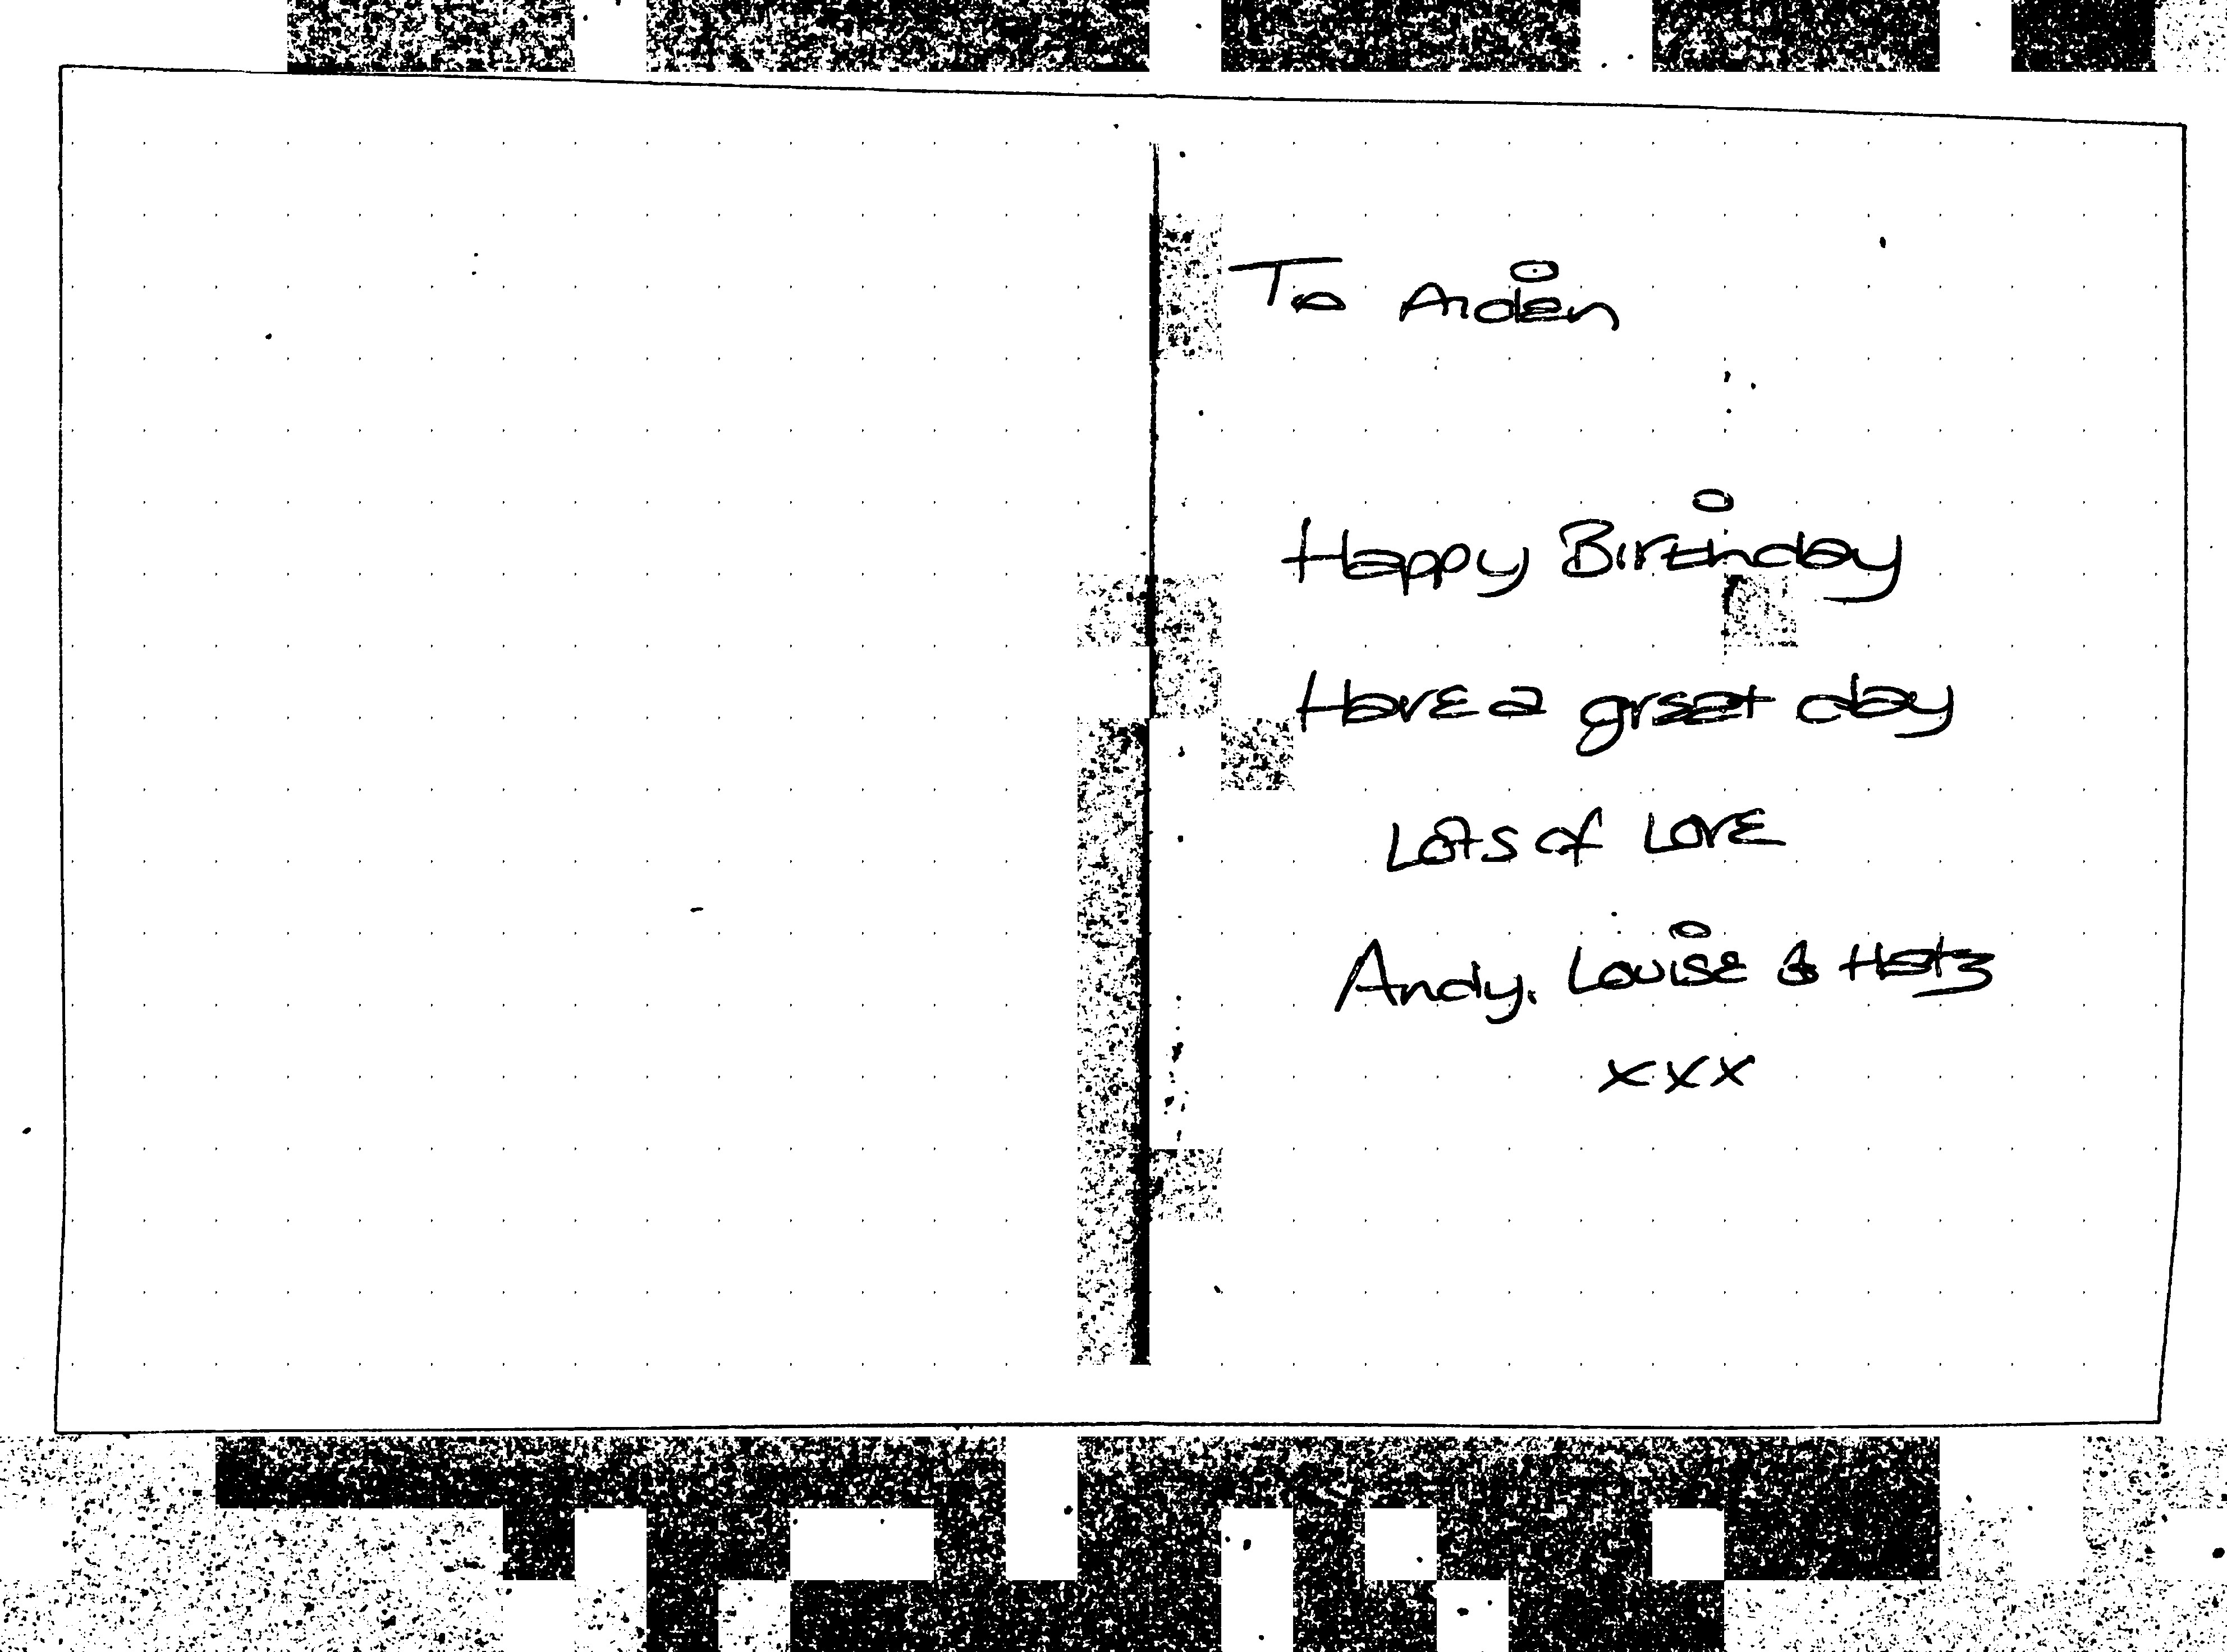 To Aiden
Happy Birthday
Have a great day
Lots of Love
Andy, Louise & Hatz
xxx